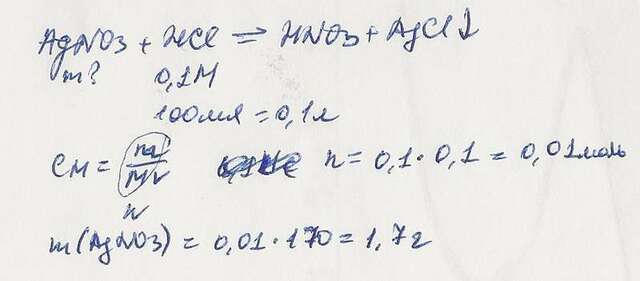 AgNO3 + HCl = HNO3 + AgCl↓
m? 0,1М
100мл = 0,1л
CМ = m/MV n = 0,1·0,1 = 0,01моль
n
m(AgNO3) = 0,01·170 = 1,7г